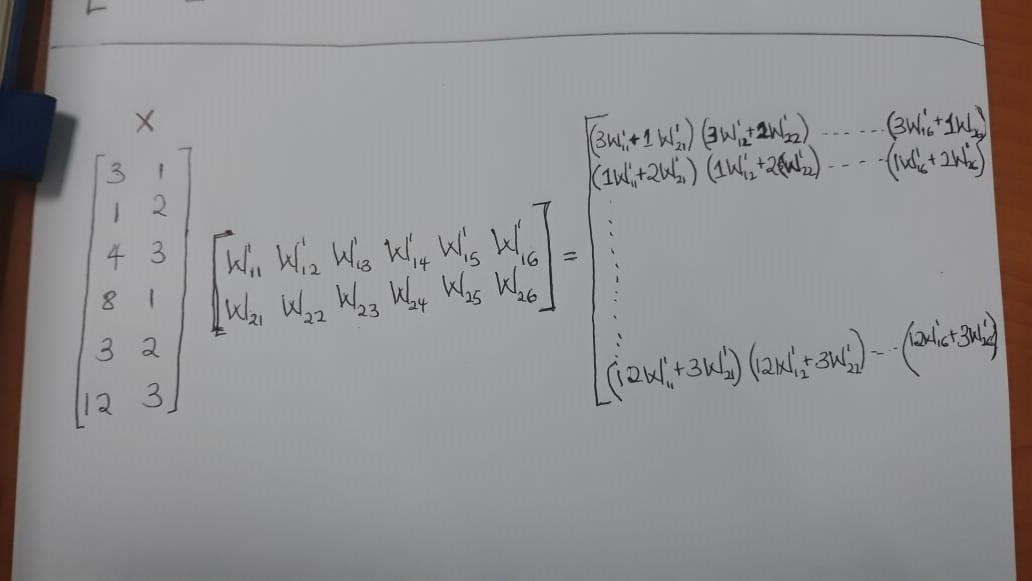 X
[3 1
1 2
4 3
8 1
3 2
12 3]
[W'₁₁ W'₁₂ W'₁₃ W'₁₄ W'₁₅ W'₁₆
W₂₁ W₂₂ W₂₃ W₂₄ W₂₅ W₂₆] =
[(3W'₁₁+1W'₂₁) (3W'₁₂+1W'₂₂) ...... (3W'₁₆+1W'₂₆)
(1W'₁₁+2W'₂₁) (1W'₁₂+2W'₂₂) ...... (1W'₁₆+2W'₂₆)
(12W'₁₁+3W'₂₁) (12W'₁₂+3W'₂₂) -- (12W'₁₆+3W'₂₆)]